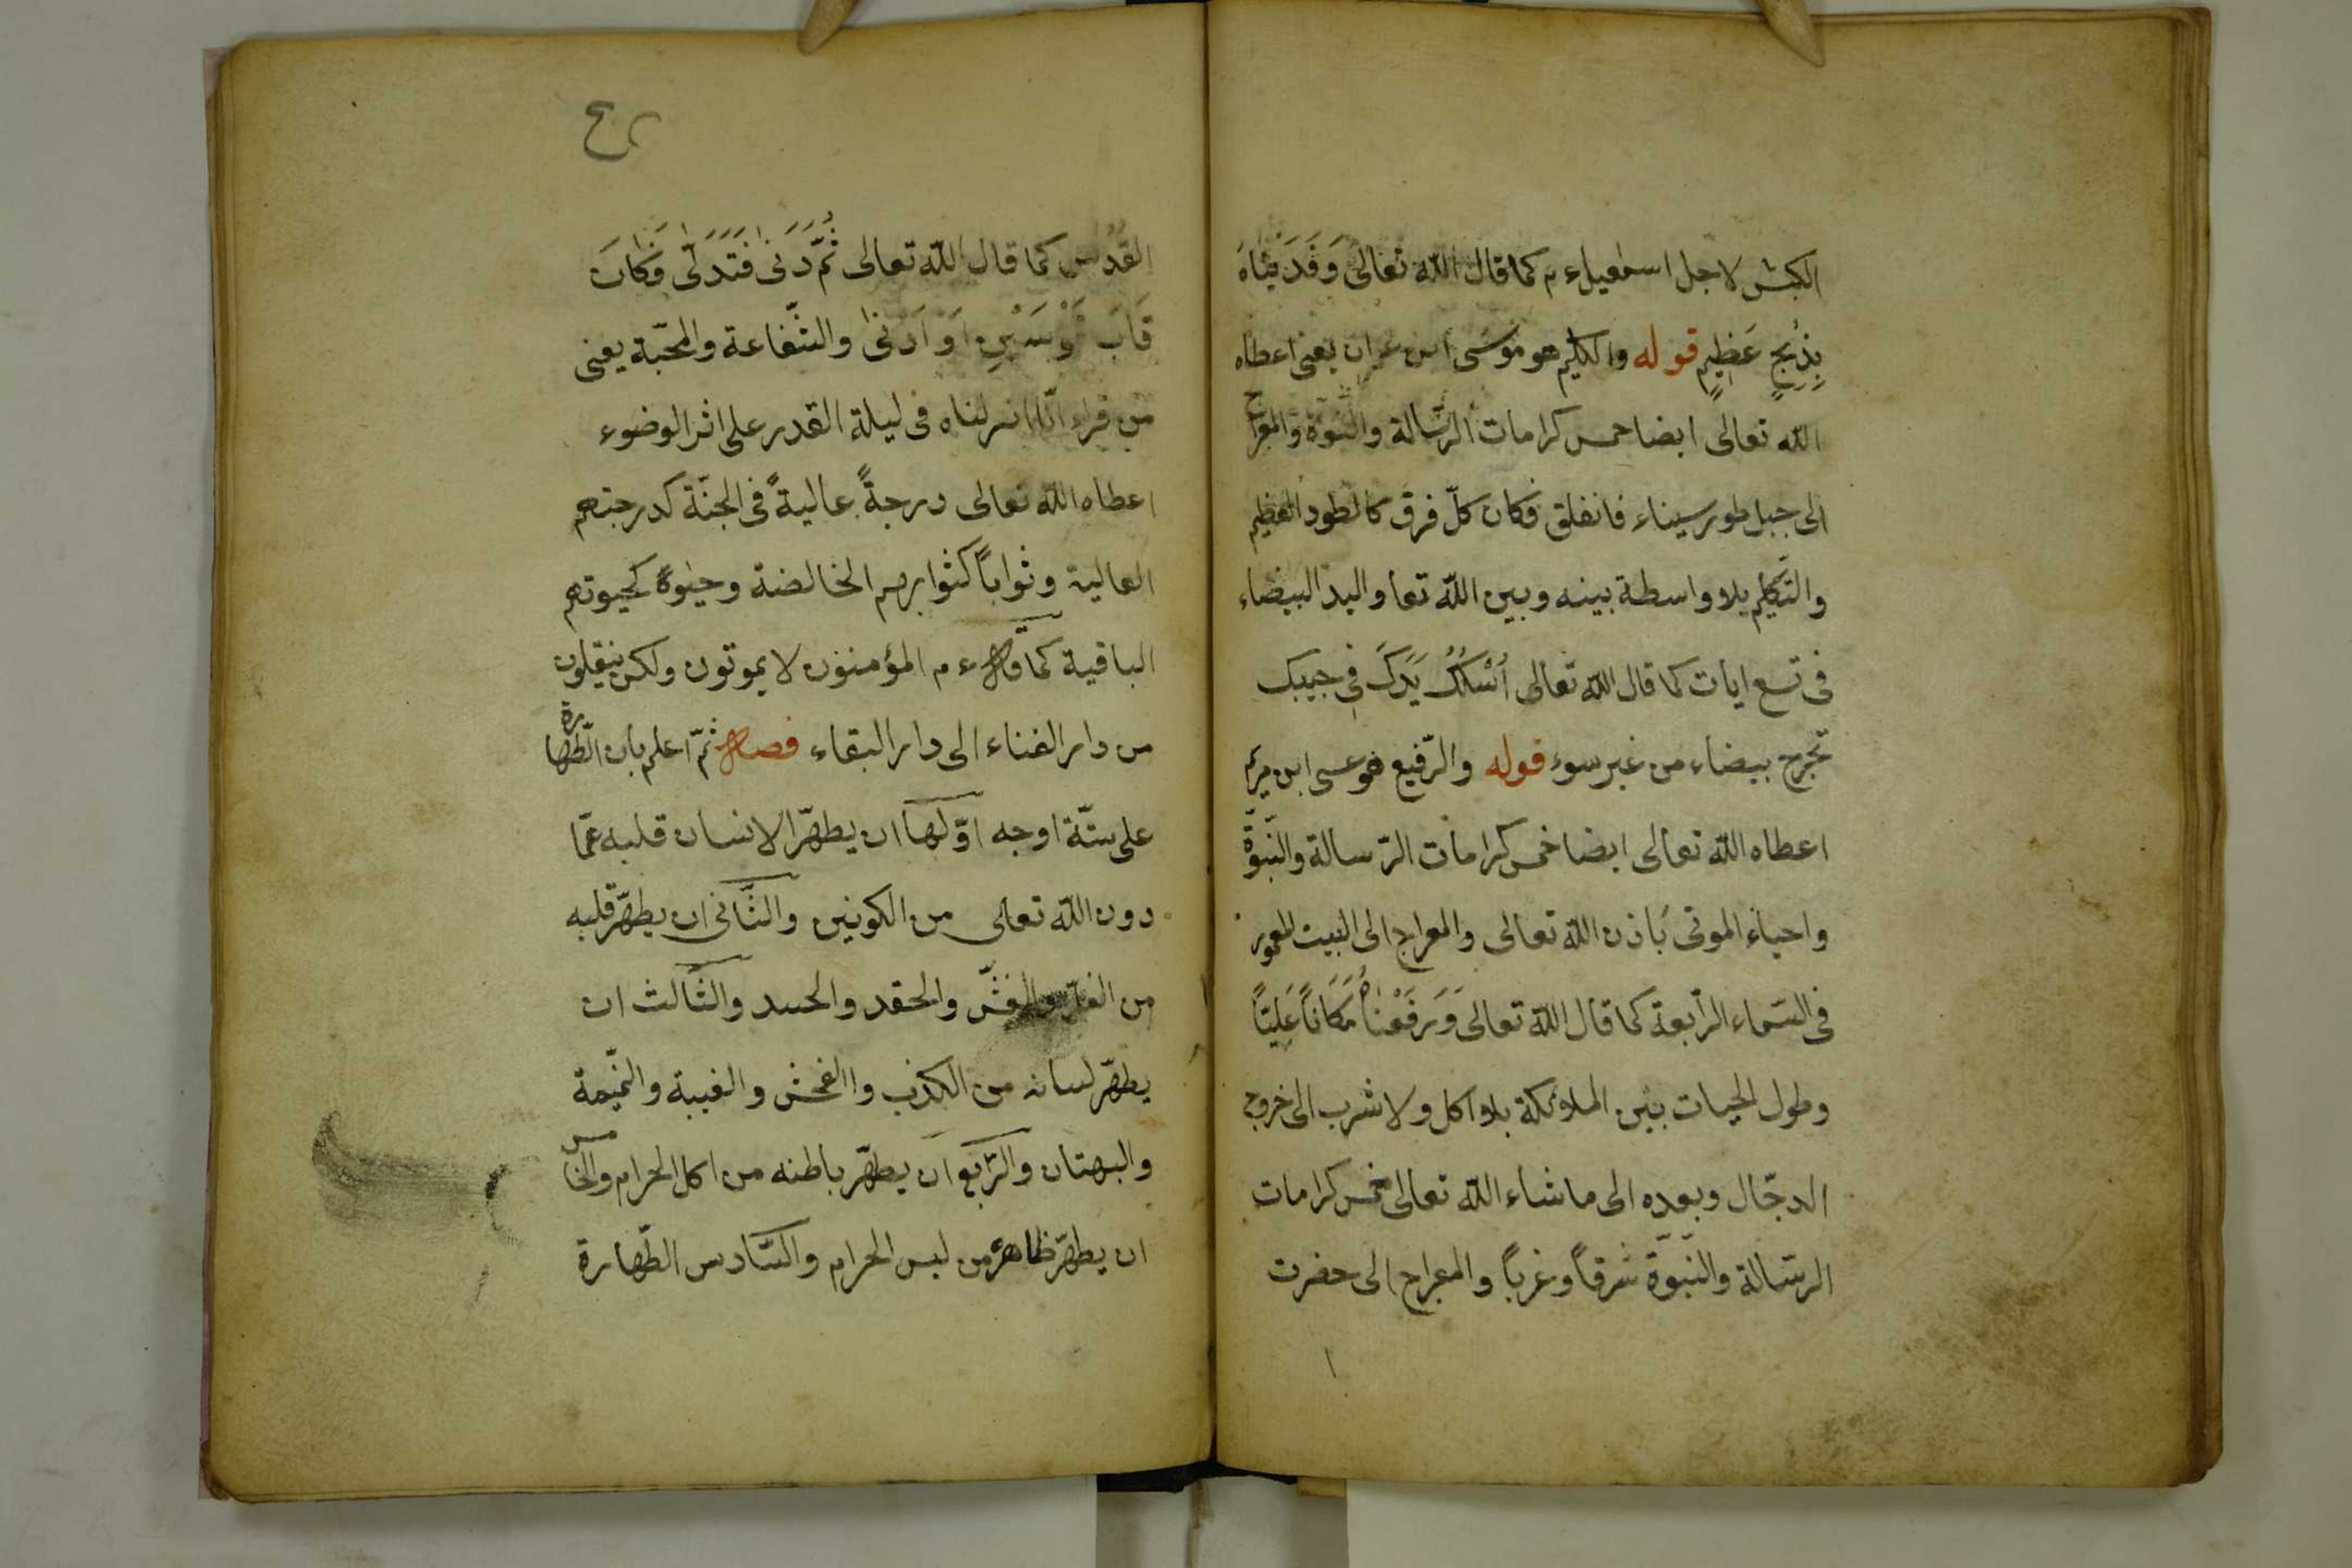 الكبش لاجل اسمعيل ءم كما قال الله تعالى وَفَدَيْنَاهُ
بِذِبْحٍ عَظِيمٍ قوله والكليم هو موسى ابن عمران يعنى اعطاه
الله تعالى ايضا خمس كرامات الرّسالة والنّبوّة والمعراج
الى جبل طور سيناء فانفلق فكان كلّ فرق كالطود العظيم
والتّكليم بلا واسطة بينه وبين الله تعا واليد البيضاء
فى تسع ايات كما قال الله تعالى اُسْلُكْ يَدَكَ فى جيبك
تخرج بيضاء من غير سوء قوله والرّفيع هو عيسى ابن مريم
اعطاه الله تعالى ايضا خمس كرامات الرّسالة والنّبوّة
واحياء الموتى باذن الله تعالى والمعراج الى البيت المعمور
فى السّماء الرّابعة كما قال الله تعالى وَرَفَعْنَاهُ مَكَاناً عَلِيّاً
وطول الحيات بين الملائكة بلا اكل ولا شرب الى خروج
الدجّال وبعده الى ما شاء الله تعالى خمس كرامات
الرسّالة والنّبوّة شرقاً وغرباً والمعراج الى حضرت
القُدُس كما قال الله تعالى ثُمَّ دَنىٰ فَتَدَلّىٰ فَكَانَ
قَابَ قَوْسَيْنِ اَوْ اَدْنىٰ والشّفاعة والمحبّة يعنى
من قراء انّا انزلناه فى ليلة القدر على اثر الوضوء
اعطاه الله تعالى درجةً عاليةً فى الجنّة كدرجتهم
العالية وثواباً كثوابهم الخالصة وحيٰوةً كحيوتهم
الباقية كما قال ءم المؤمنون لا يموتون ولكن ينقلون
من دار الفناء الى دار البقاء فصل ثمّ اعلم بان الطّهارة
على ستّة اوجه اوّلها ان يطهّر الانسان قلبه عمّا
دون الله تعالى من الكونين والثّانى ان يطهّر قلبه
من الغلّ والغشّ والحقد والحسد والثّالث ان
يطهّر لسانه من الكذب واالفحش والغيبة والنّميمة
والبهتان والرّابع ان يطهّر باطنه من اكل الحرام والخامس
ان يطهّر ظاهره من لبس الحرام والسّادس الطّهارة